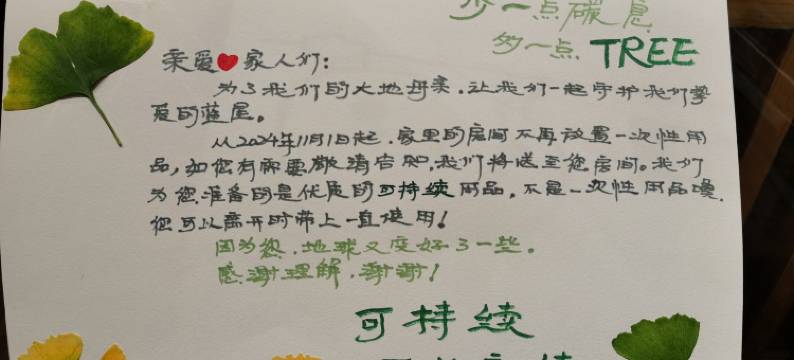 少一点碳息
多一点 TREE
亲爱❤家人们：
为了我们的大地母亲，让我们一起守护我们挚
爱的蓝星。
从2024年11月1日起，家里的房间不再放置一次性用
品，如您有需要敬请告知，我们将送至您房间。我们
为您准备的是优质的可持续用品，不是一次性用品噢，
您可以离开时带上一直使用！
因为您，地球又变好了一些。
感谢理解，谢谢！
可持续